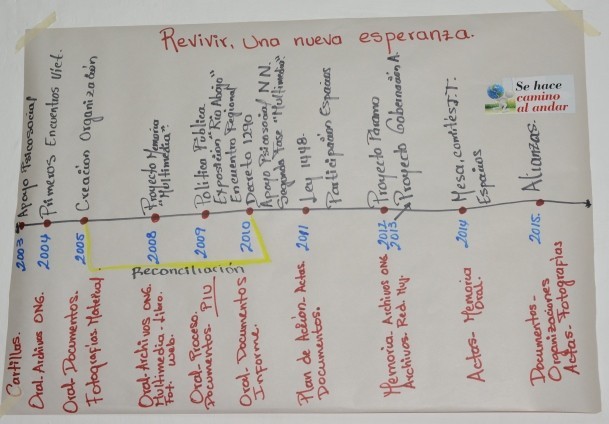 Revivir, Una nueva esperanza.
Se hace
camino
al andar
Apoyo Psicosocial
Primeros Encuentros Vict.
Creación Organización
Proyecto Memoria
"Multimedia"
Política Pública
Exposición "Río Abajo"
Encuentro Regional
Decreto 1290
Apoyo Psicosocial N.N.
Segunda Fase "Multimedia"
Ley 1448.
Participación Espacios
Proyecto Páramo
Proyecto Gobernación A.
Mesa, comités J.T.
Espacios
Alianzas.
2003
2004
2005
2008
2009
2010
2011
2012
2013
2014
2015.
Reconciliación
Cartillas.
Oral. Archivos ONG.
Oral. Documentos.
Fotografías Material
Oral. Archivos ONG.
Multimedia - Libro.
Fot. Web.
Oral. Proceso.
Documentos. PIU
Oral. Documentos
Informe.
Plan de Acción. Actas.
Documentos.
Memoria. Archivos ONG
Archivos. Red. Muj.
Actas - Memoria
Oral.
Documentos -
Organizaciones
Actas - Fotografías